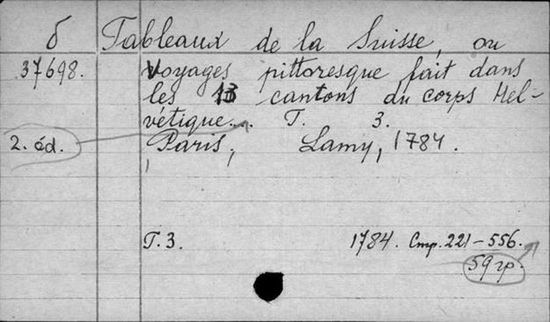 б Tableaux de la Suisse, ou
37698. Voyages pittoresque fait dans
les 13 cantons du corps Hel-
vétique... T. 3.
2. éd. Paris, Lamy, 1784.
T. 3. 1784. Стр. 221-556.
59 гр.